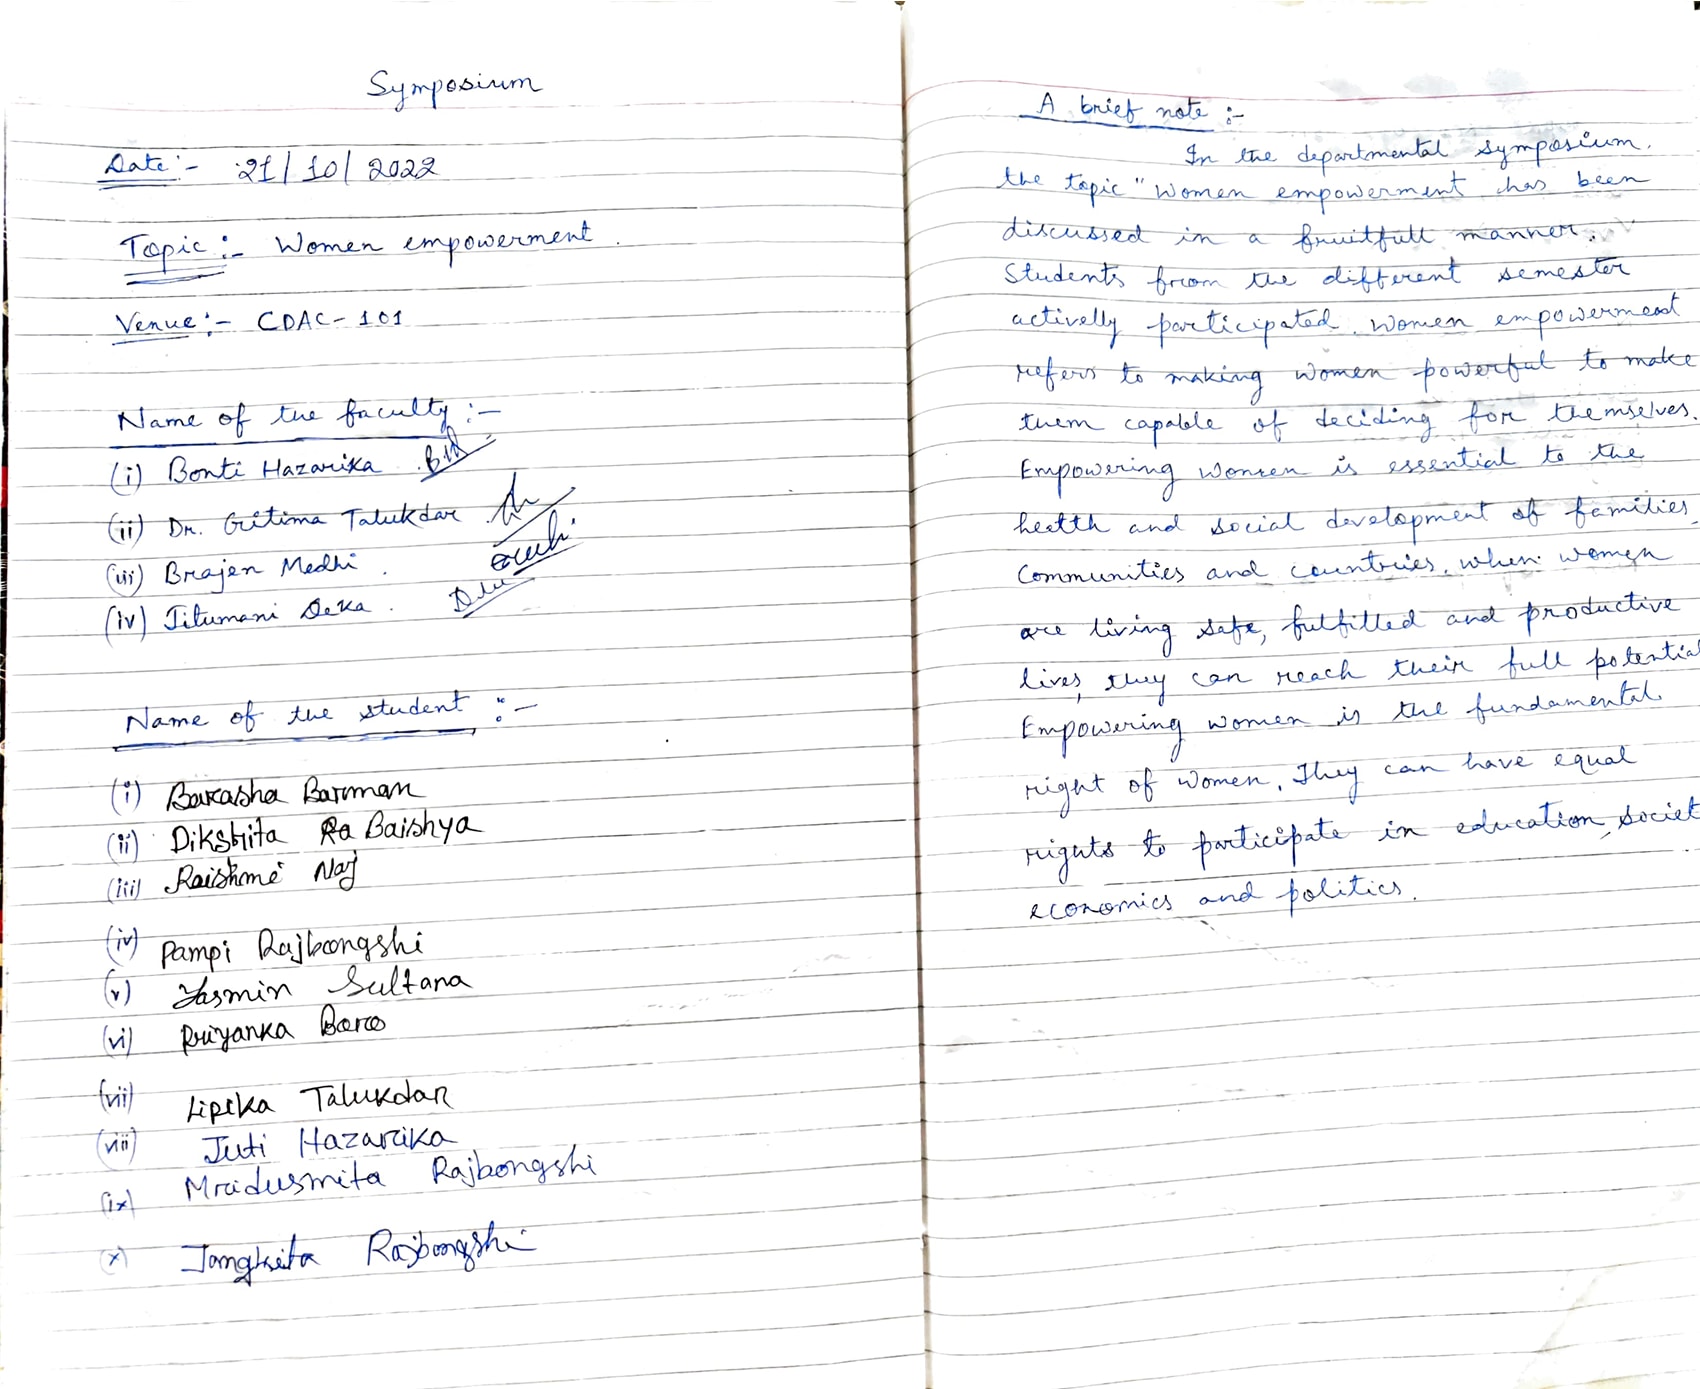 Symposium
Date :- 21/10/2022
Topic :- Women empowerment.
Venue :- CDAC-101
Name of the faculty :-
(i) Bonti Hazarika
(ii) Dr. Gitima Talukdar
(iii) Brajen Medhi
(iv) Jitumani Deka.
Name of the student :-
(i) Barasha Barman
(ii) Dikshita Ra Baishya
(iii) Raishme Naj
(iv) Pampi Rajbongshi
(v) Yasmin Sultana
(vi) Priyanka Boro
(vii) Lipika Talukdar
(viii) Juti Hazarika
(ix) Mridusmita Rajbongshi
(x) Rajbongshi
A brief note :-
In the departmental symposium.
the topic "Women empowerment has been
discussed in a fruitfull manner.
Students from the different semester
activelly participated. Women empowerment
refers to making women powerful to make
them capable of deciding for themselves.
Empowering women is essential to the
health and social development of families,
Communities and countries. when women
are living safe, fulfilled and productive
lives, they can reach their full potential
Empowering women is the fundamental
right of women. They can have equal
rights to participate in education, societ
economics and politics.